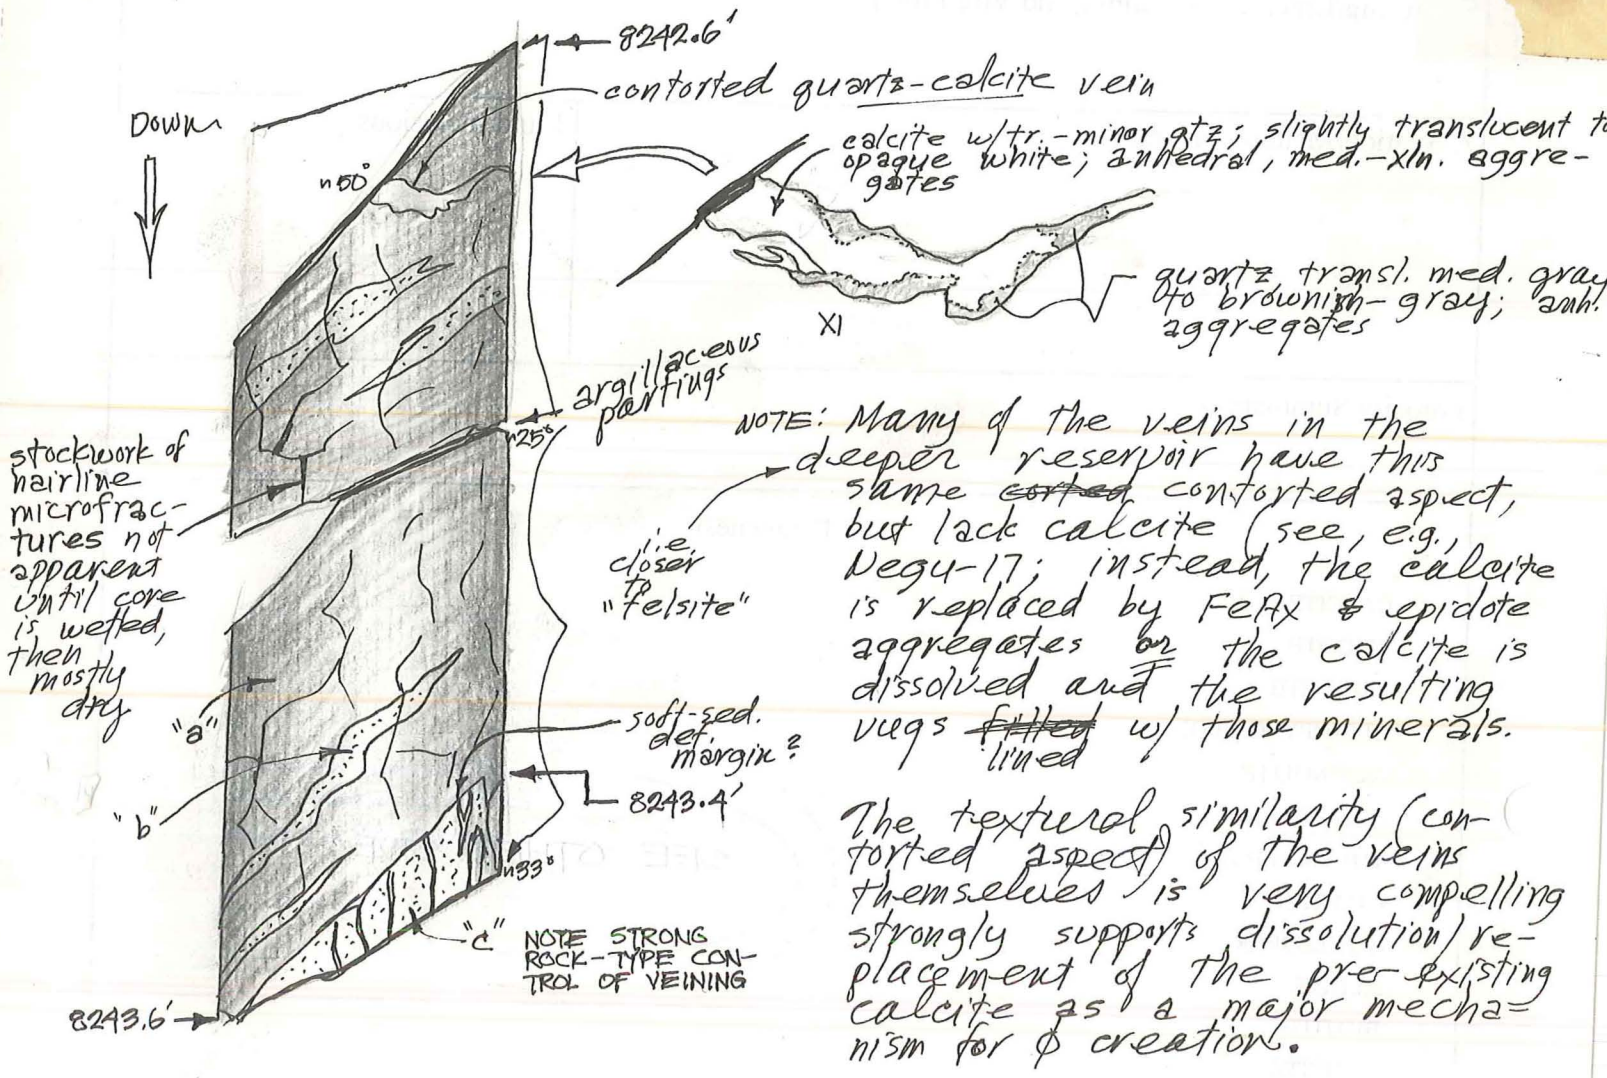 8242.6'
contorted quartz-calcite vein
Down
calcite w/tr.-minor qtz; slightly translucent to
opaque white; anhedral, med.-xln. aggre-
gates
~50°
quartz, transl. med. gray
to brownish-gray; anh.
aggregates
X1
argillaceous
partings
~25°
stockwork of
hairline
microfrac-
tures not
apparent
until core
is wetted,
then
mostly
dry
NOTE: Many of the veins in the
deeper reservoir have this
same corted contorted aspect,
but lack calcite (see, e.g.,
Negu-17; instead, the calcite
is replaced by FeAx & epidote
aggregates or the calcite is
dissolved and the resulting
vugs filled w/ those minerals.
lined
i.e.
closer
to
"felsite"
"a"
"b"
soft-sed.
def.
margin?
8243.4'
~33°
"c"
NOTE STRONG
ROCK-TYPE CON-
TROL OF VEINING
8243.6'
The textural similarity (con-
torted aspect) of the veins
themselves is very compelling
strongly supports dissolution/re-
placement of the pre-existing
calcite as a major mecha-
nism for ϕ creation.